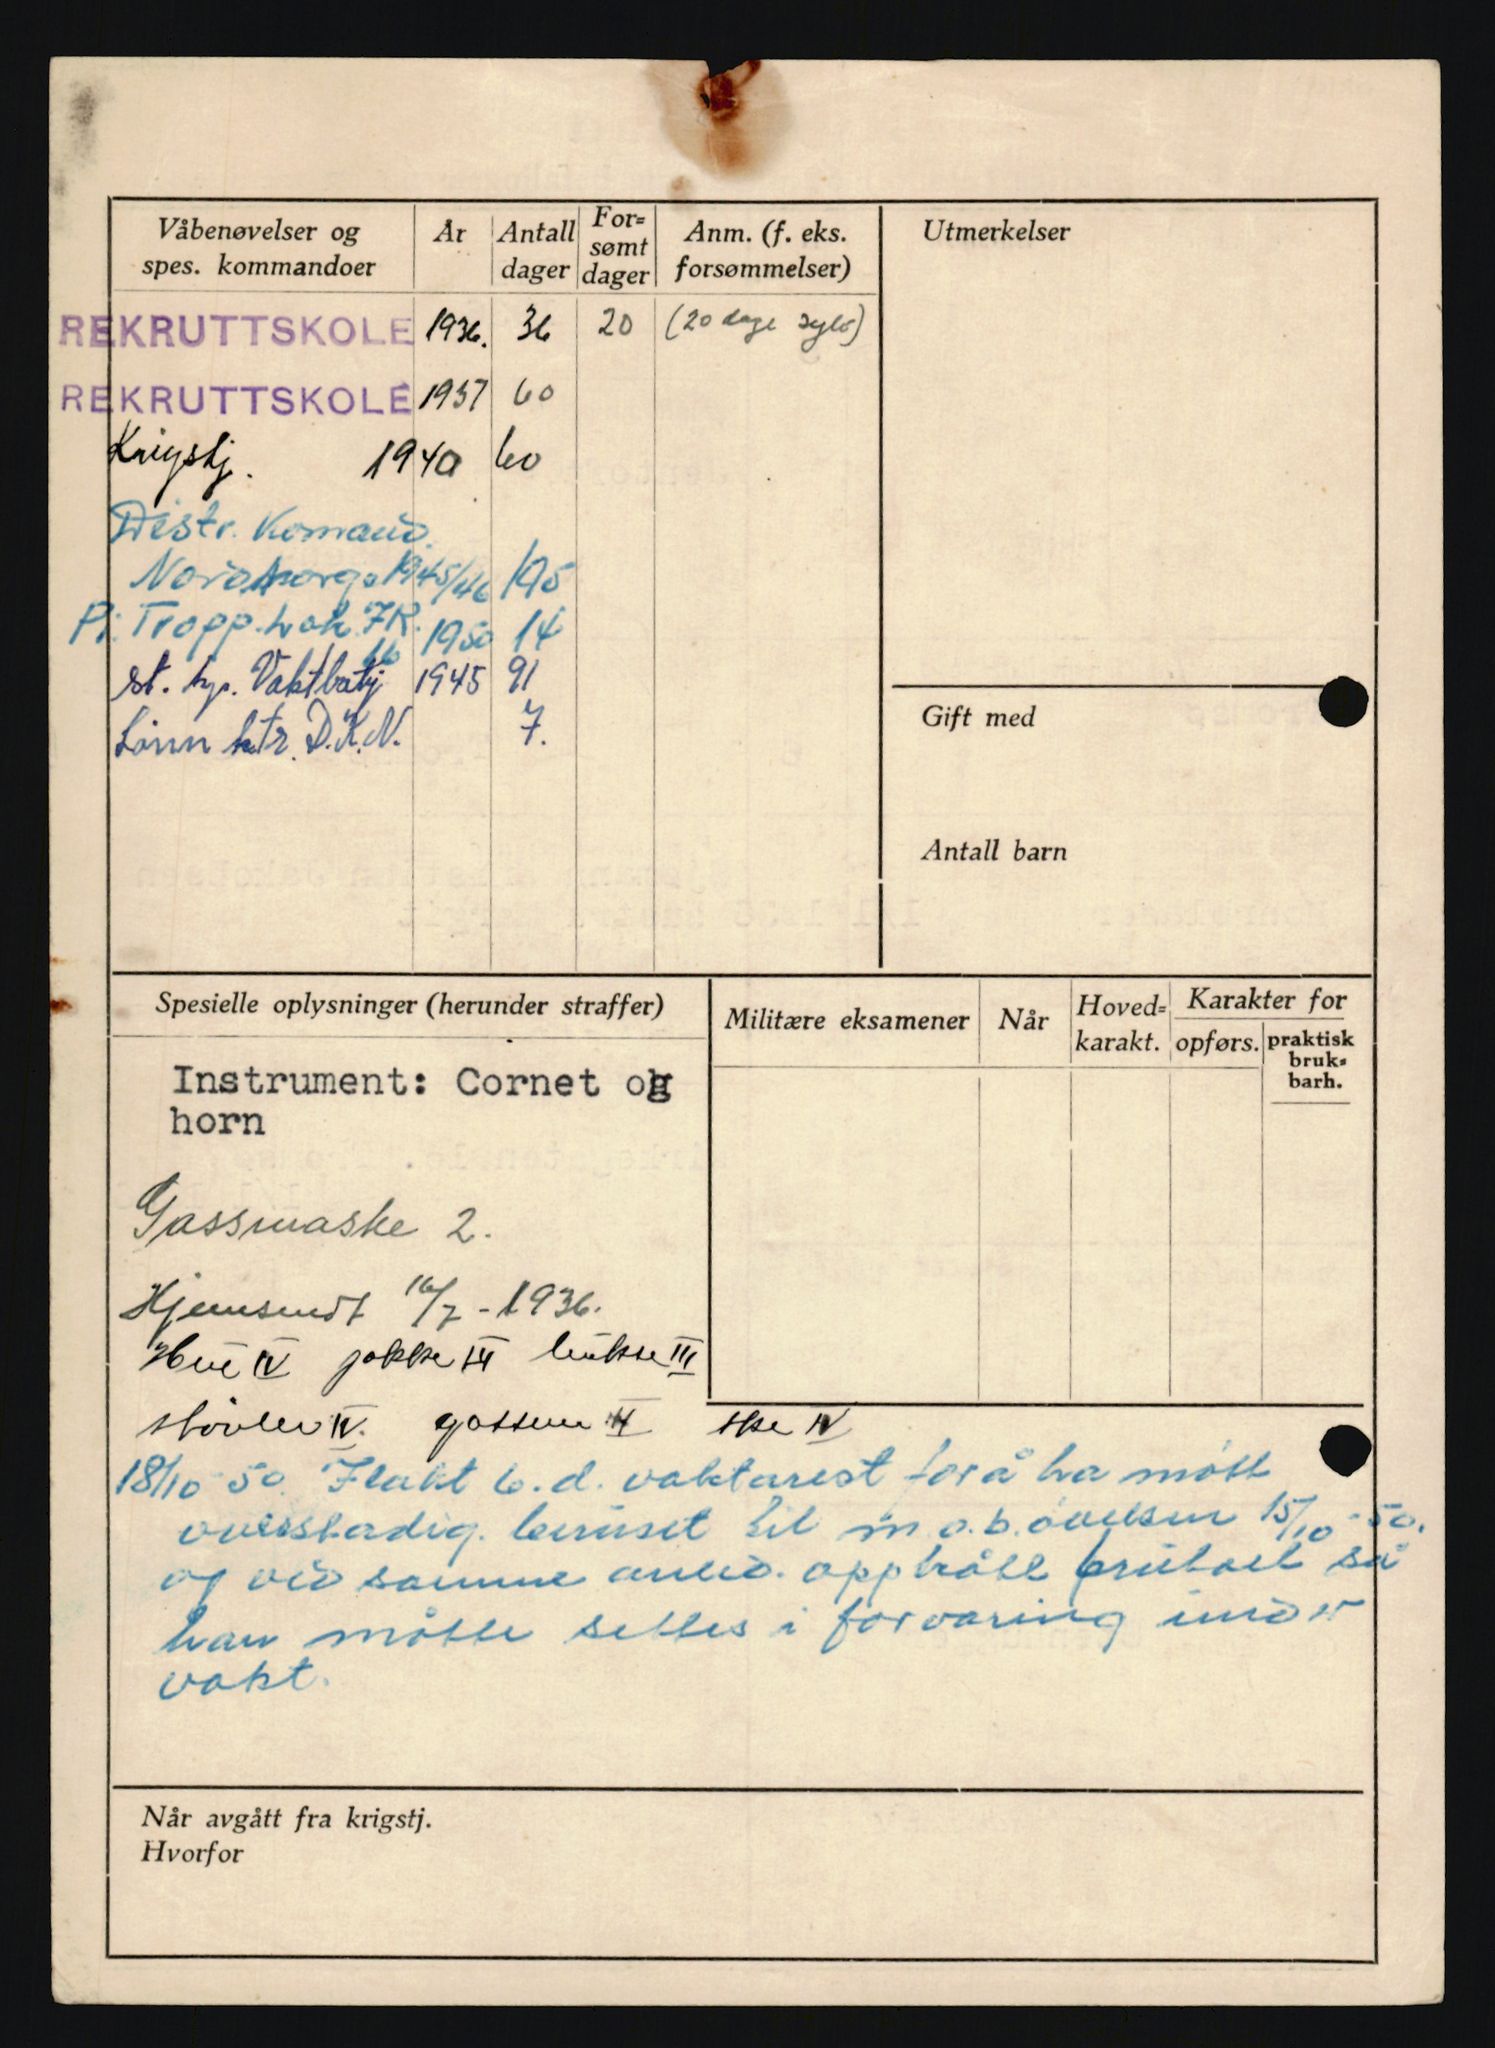 Våbenøvelser og spes. kommandoer | År | Antall dager | For=sømt dager | Anm. (f. eks. forsømmelser)
REKRUTTSKOLE 1936. 36 20 (20 dage syk)
REKRUTTSKOLE 1937 60
Krigstj. 1940 60
Distr. Komand.
Nordnorge 1945/46 195
Pi. Tropp. vok. IR. 1950 14
16
st. kp. Vaktbatj 1945 91
Lønn ktr. D.K.N. 7.
Utmerkelser
Gift med
Antall barn
Spesielle oplysninger (herunder straffer)
Instrument: Cornet og
horn
Gassmaske 2.
Hjemsendt 16/7 - 1936.
Hue IV jakke III bukse III
støvler IV. II ske IV
18/10 50. Ilakt 6. d. vaktarest for å ha møtt
overstadig. beruset til m.o.b. øvelsen 15/10 - 50.
og ved samme anled. opptrått brutalt så
han måtte settes i forvaring under
vakt.
Militære eksamener | Når | Hoved=karakt. | Karakter for
opførs. | praktisk bruk=barh.
Når avgått fra krigstj.
Hvorfor